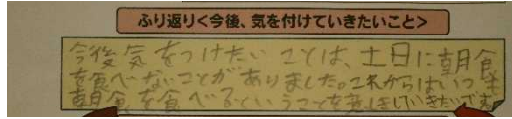 ふり返り<今後、気を付けていきたいこと>
今後気をつけたいことは、土日に朝食
を食べないことがありました。これからはいつも
朝食を食べるということを意しきしていきたいです